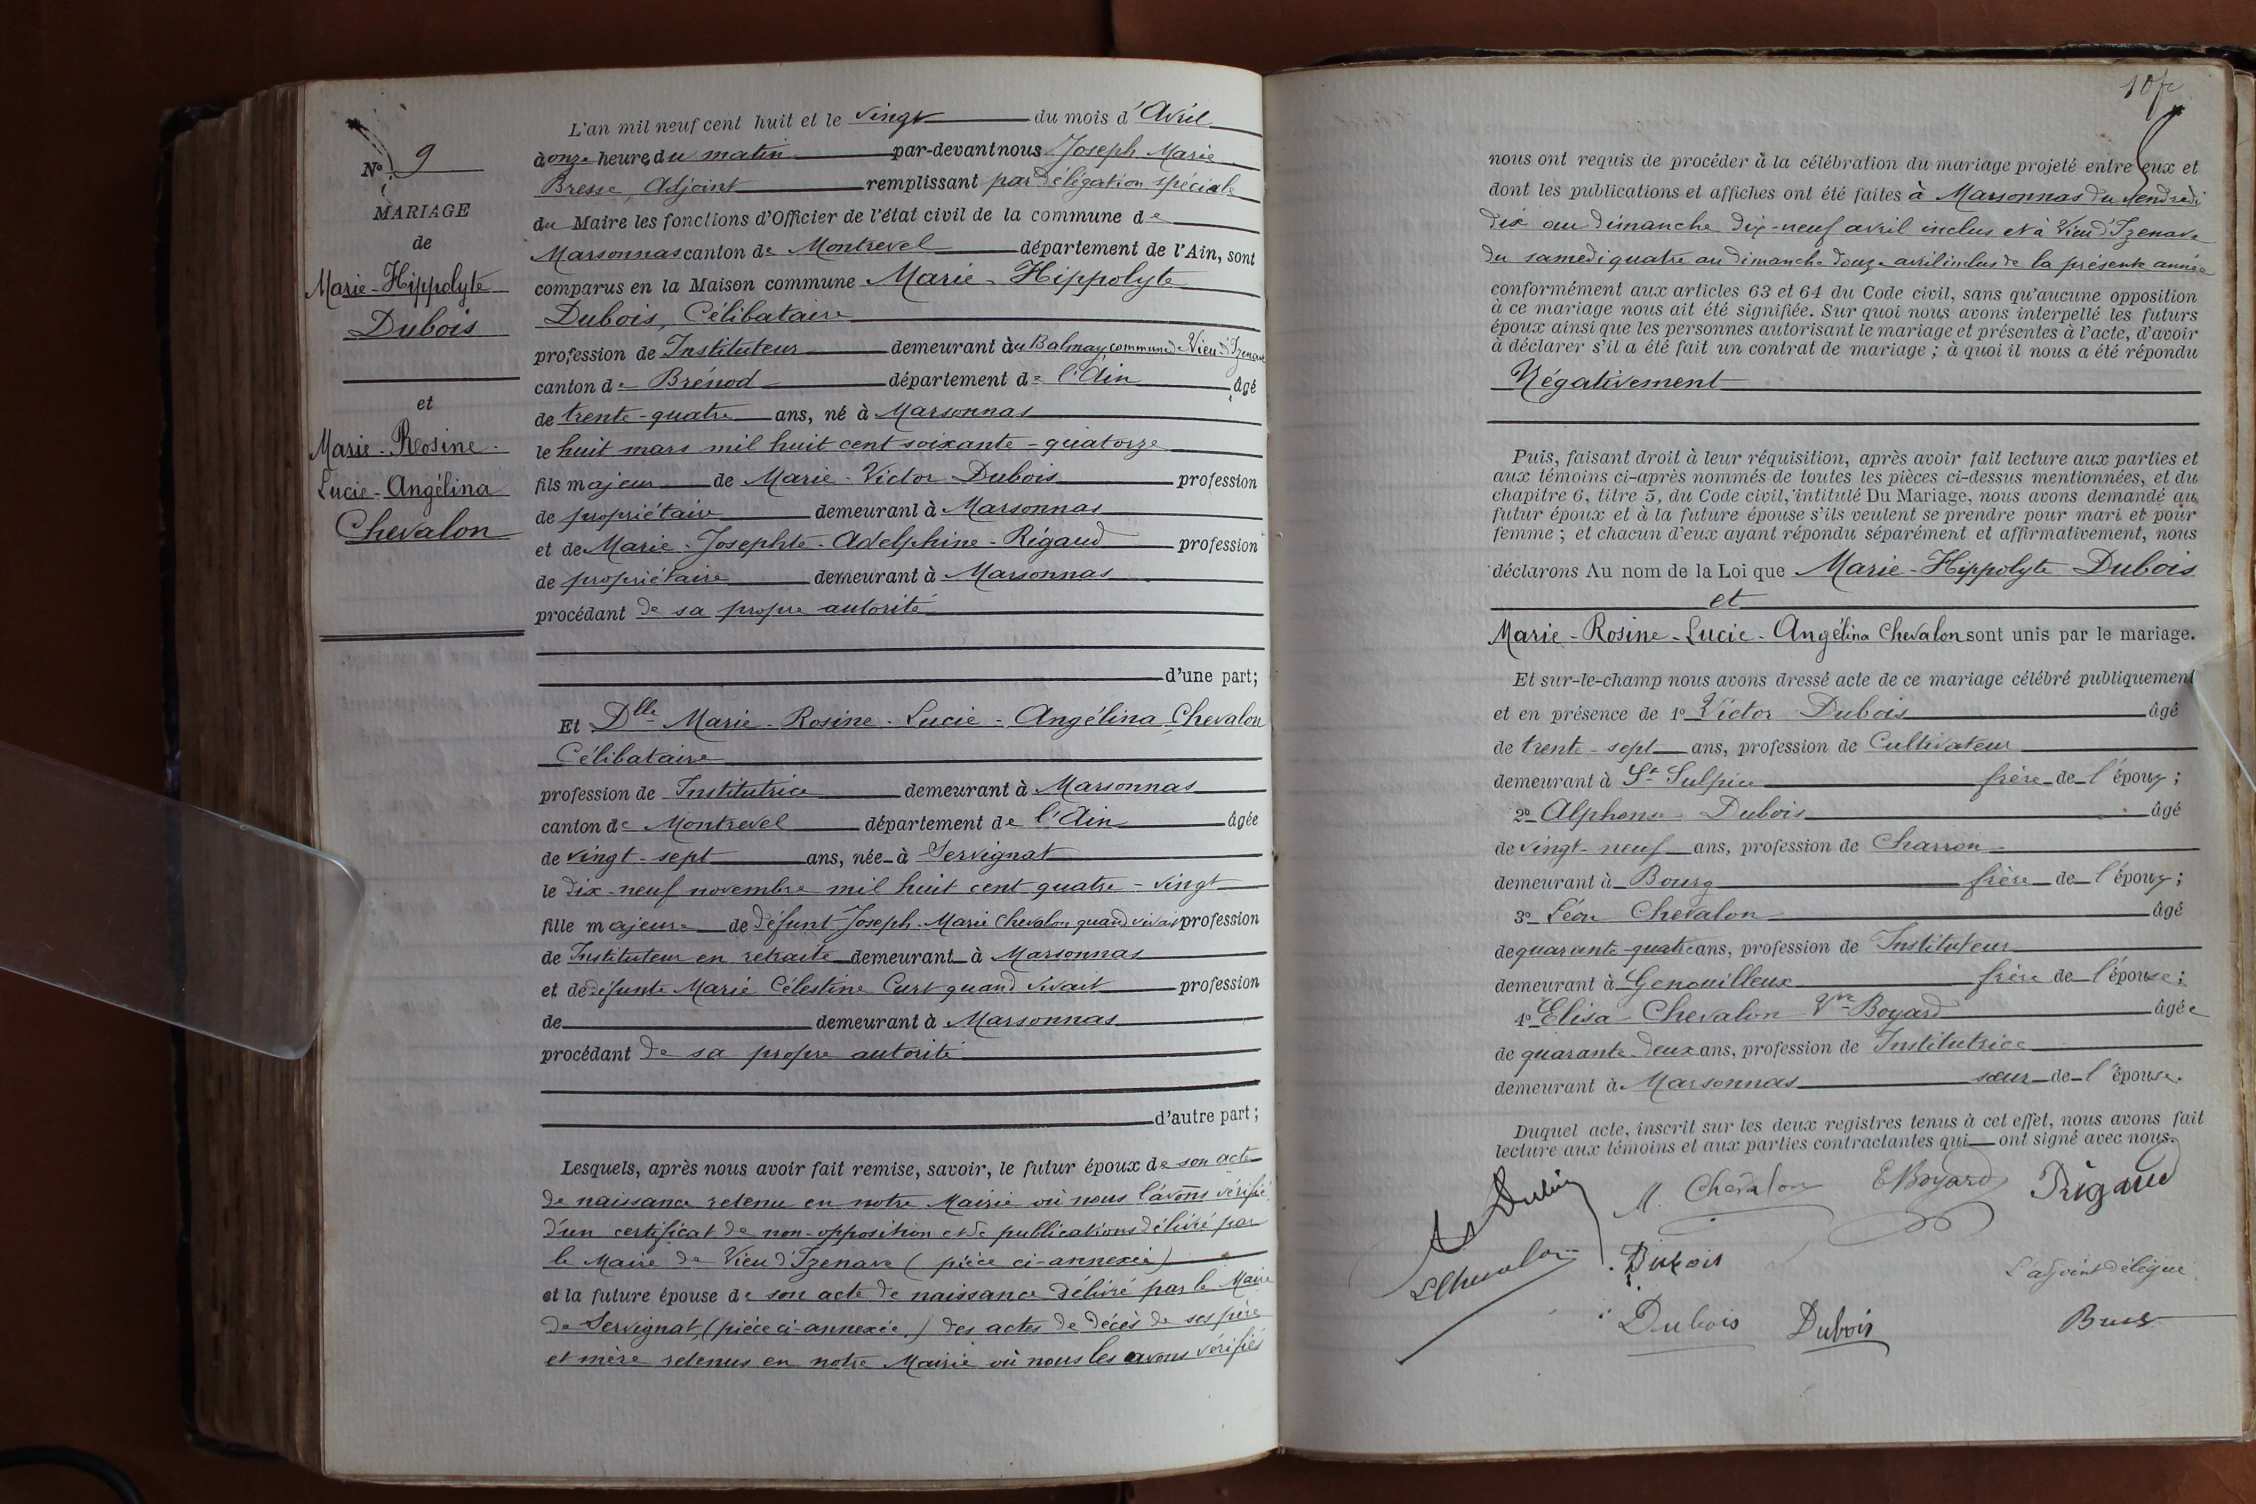 N° 9
MARIAGE
de
Marie-Hippolyte
Dubois
et
Marie-Rosine-
Lucie-Angélina
Chevalon
L'an mil neuf cent huit et le vingt du mois d'Avril
à onze heures du matin par-devant nous Joseph Marie
Bresse, Adjoint remplissant par délégation spéciale
du Maire les fonctions d'Officier de l'état civil de la commune de
Marsonnas canton de Montrevel département de l'Ain, sont
comparus en la Maison commune Marie-Hippolyte
Dubois, Célibataire
profession de Instituteur demeurant à u Balmay commune de Vieu d'Izenave
canton de Brénod département de l'Ain âgé
de trente-quatre ans, né à Marsonnas
le huit mars mil huit cent soixante-quatorze
fils majeur de Marie-Victor Dubois profession
de propriétaire demeurant à Marsonnas
et de Marie-Josephte-Adelphine-Rigaud profession
de propriétaire demeurant à Marsonnas
procédant de sa propre autorité
d'une part;
Et Dlle Marie-Rosine-Lucie-Angélina Chevalon
Célibataire
profession de Institutrice demeurant à Marsonnas
canton de Montrevel département de l'Ain âgée
de vingt-sept ans, née à Servignat
le dix-neuf novembre mil huit cent quatre-vingt
fille majeure de défunt Joseph-Marie Chevalon quand vivait profession
de Instituteur en retraite demeurant à Marsonnas
et de défunte Marie Célestine Curt quand vivait profession
de demeurant à Marsonnas
procédant de sa propre autorité
d'autre part;
Lesquels, après nous avoir fait remise, savoir, le futur époux de son acte
de naissance retenu en notre Mairie où nous l'avons vérifié
d'un certificat de non-opposition et de publications délivré par
le Maire de Vieu d'Izenave (pièce ci-annexée)
et la future épouse de son acte de naissance délivré par le Maire
de Servignat, (pièce ci-annexée,) des actes de décès de ses père
et mère retenus en notre Mairie où nous les avons vérifiés
nous ont requis de procéder à la célébration du mariage projeté entre eux et
dont les publications et affiches ont été faites à Marsonnas du vendredi
dix au dimanche dix-neuf avril inclus et à Vieu d'Izenave
du samedi quatre au dimanche douze avril inclus de la présente année
conformément aux articles 63 et 64 du Code civil, sans qu'aucune opposition
à ce mariage nous ait été signifiée. Sur quoi nous avons interpellé les futurs
époux ainsi que les personnes autorisant le mariage et présentes à l'acte, d'avoir
à déclarer s'il a été fait un contrat de mariage ; à quoi il nous a été répondu
Négativement
Puis, faisant droit à leur réquisition, après avoir fait lecture aux parties et
aux témoins ci-après nommés de toutes les pièces ci-dessus mentionnées, et du
chapitre 6, titre 5, du Code civil, intitulé Du Mariage, nous avons demandé au
futur époux et à la future épouse s'ils veulent se prendre pour mari et pour
femme ; et chacun d'eux ayant répondu séparément et affirmativement, nous
déclarons Au nom de la Loi que Marie-Hippolyte Dubois
et
Marie-Rosine-Lucie-Angélina Chevalon sont unis par le mariage.
Et sur-le-champ nous avons dressé acte de ce mariage célébré publiquement
et en présence de 1° Victor Dubois âgé
de trente-sept ans, profession de Cultivateur
demeurant à St Sulpice frère de l'époux;
2° Alphonse Dubois âgé
de vingt-neuf ans, profession de Charron
demeurant à Bourg frère de l'époux;
3° Léon Chevalon âgé
de quarante-quatre ans, profession de Instituteur
demeurant à Genouilleux frère de l'épouse;
4° Elisa Chevalon Vve Boyard âgée
de quarante-deux ans, profession de Institutrice
demeurant à Marsonnas sœur de l'épouse.
Duquel acte, inscrit sur les deux registres tenus à cet effet, nous avons fait
lecture aux témoins et aux parties contractantes qui ont signé avec nous.
Dubois M. Chevalon E Boyard Rigaud
LChevalon Dubois L'adjoint délégué
Dubois Dubois Bresse